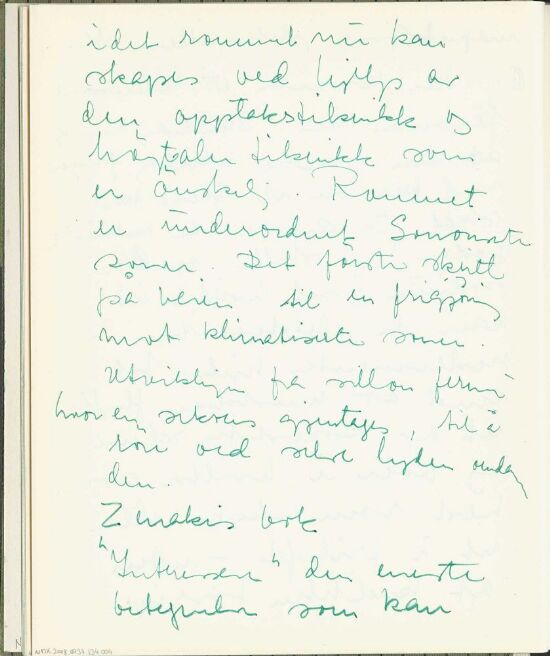 i det rommet nu kan
skapes ved hjelp av
den opptaksteknikk og
høytaler teknikk som
er önskelig. Rommet
er underordnet
soner. Det første skritt
på veien til en frigjøring
mot klimatiserte soner.
Utviklingen fra sillon fermé
hvor en sekvens gjentages, til å
röre ved selve lyden
den.
Zenakis bok
den eneste
betegnelse som kan